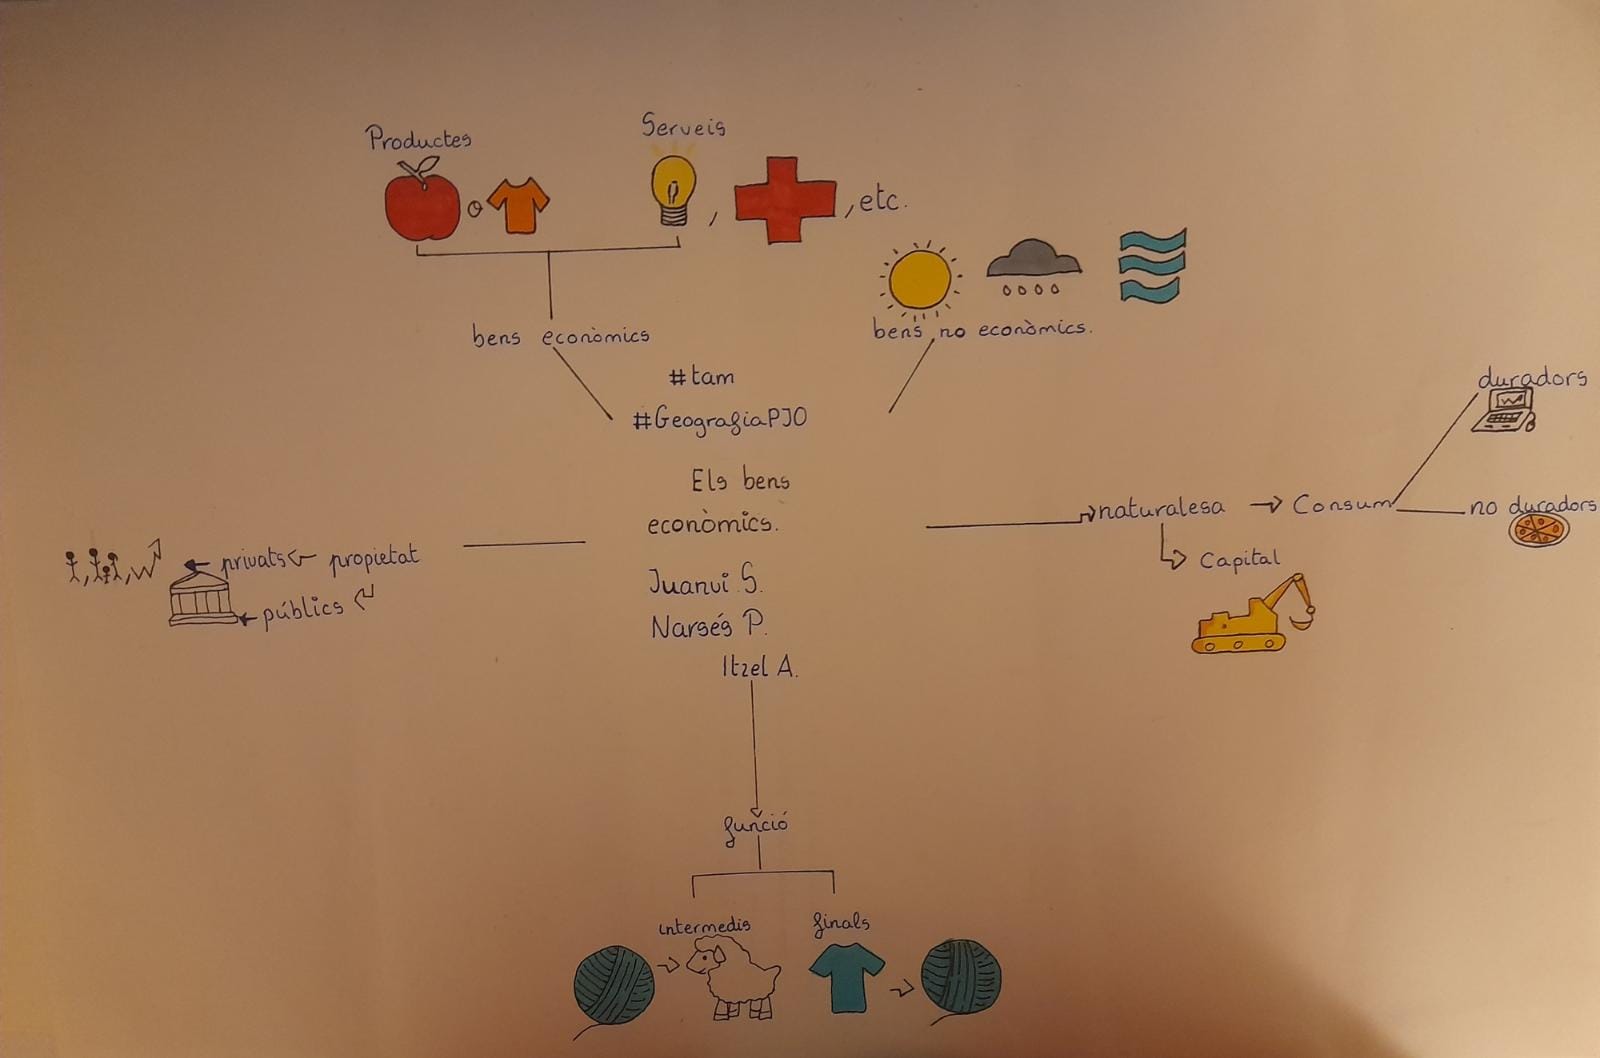 Productes
Serveis
o
, , etc.
bens econòmics
bens no econòmics.
#tam
#GeografiaPJO
Els bens
econòmics.
Juanvi S.
Narsés P.
Itzel A.
propietat
privats
públics
naturalesa
Consum
duradors
no duradors
Capital
funció
intermedis
finals